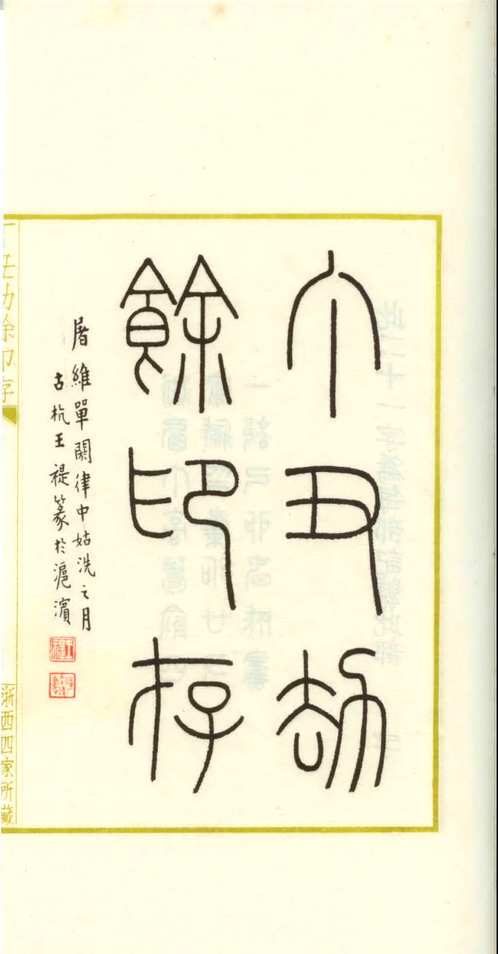 丁丑劫
餘印存
屠維單閼律中姑洗之月
古杭王禔篆於滬濱
丁丑劫餘印存
浙西四家所藏